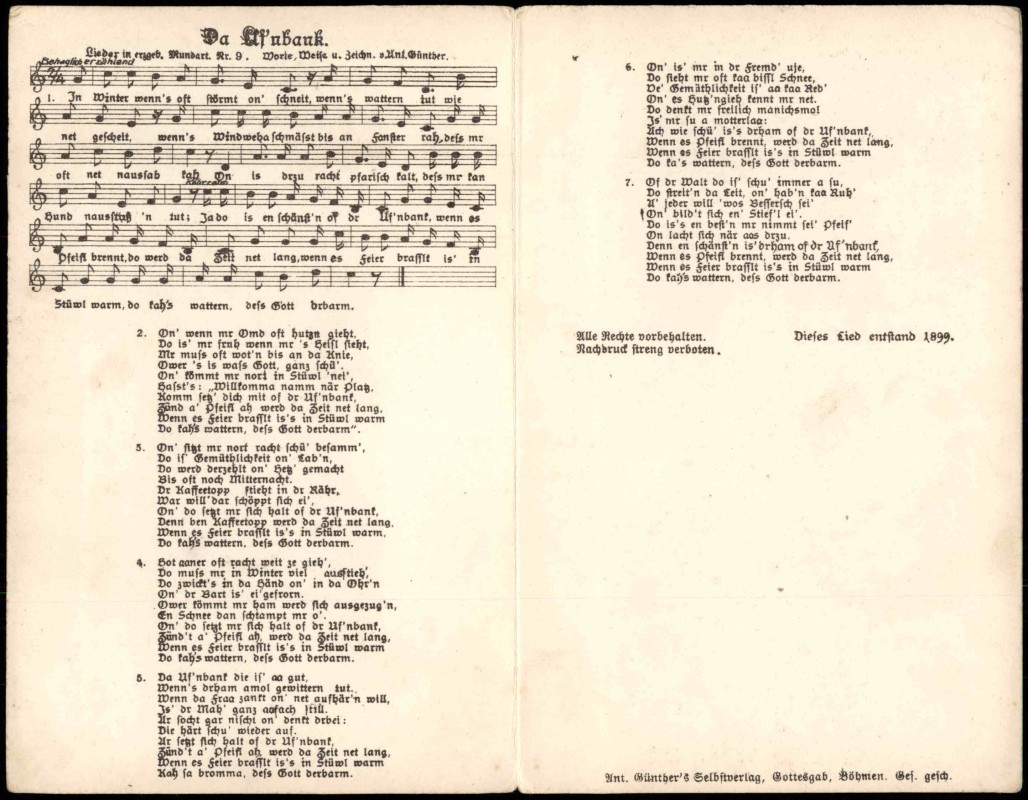 Da Uf'nbank.
Lieder in erzgeb. Mundart. Nr. 9. Worte, Weise u. Zeichn. v. Ant. Günther.
Behaglich erzählend
2/4
1. In Winter wenn's oft störmt on' schneit, wenn's wattern tut wie
net gescheit, wenn's Windweha schmässt bis an Fanster rah, dess mr
oft net naussah kah On' is drzu racht pfarisch kalt, dess mr kan
Hund nausstuß 'n tut; Ja do is en schänst'n of dr Uf'nbank, wenn es
Pfeifl brennt, do werd da Zeit net lang, wenn es Feier brasslt is' in
Stüwl warm, do kah's wattern, dess Gott drbarm.
2. On' wenn mr Omd oft hutzn gieht,
Do is' mr fruh wenn mr 's Heisl sieht,
Mr muss oft wot'n bis an da Knie,
Ower 's is wass Gott, ganz schü'.
On' kömmt mr nort in Stüwl 'nei',
Hasst's: „Willkomma namm när Platz,
Komm setz' dich mit of dr Uf'nbank,
Zünd a' Pfeifl ah werd da Zeit net lang,
Wenn es Feier brasslt is's in Stüwl warm
Do kah's wattern, dess Gott derbarm".
3. On' sitzt mr nort racht schü' besamm',
Do is' Gemüthlichkeit on' Lab'n,
Do werd derzehlt on' Hetz' gemacht
Bis oft noch Mitternacht.
Dr Kaffeetopp stieht in dr Rähr,
War will dar schöppt sich ei',
On' do setzt mr sich halt of dr Uf'nbank,
Denn ben Kaffeetopp werd da Zeit net lang,
Wenn es Feier brasslt is's in Stüwl warm,
Do kah's wattern, dess Gott derbarm.
4. Hot aaner oft racht weit ze gieh',
Do muss mr in Winter viel ausstieh',
Do zwickt's in da Händ on' in da Ohr'n
On' dr Bart is' ei'gefrorn.
Ower kömmt mr ham werd sich ausgezug'n,
En Schnee dan schtampt mr o'.
On' do setzt mr sich halt of dr Uf'nbank,
Zünd't a' Pfeifl ah, werd da Zeit net lang,
Wenn es Feier brasslt is's in Stüwl warm
Do kah's wattern, dess Gott derbarm.
5. Da Uf'nbank die is' aa gut,
Wenn's drham amol gewittern tut.
Wenn da Fraa zankt on' net aufhär'n will,
Is' dr Mah' ganz aafach still.
Ar socht gar nischt on' denkt drbei:
Die härt schu' wieder auf.
Ar setzt sich halt of dr Uf'nbank,
Zünd't a' Pfeifl ah werd da Zeit net lang,
Wenn es Feier brasslt is's in Stüwl warm
Kah sa bromma, dess Gott derbarm.
6. On' is' mr in dr Fremd' uje,
Do sieht mr oft kaa bissl Schnee,
Ve' Gemüthlichkeit is' aa kaa Red'
On' es Hutz'ngieh kennt mr net.
Do denkt mr freilich manichsmol
Is' mr su a motterlaa:
Ach wie schü' is's drham of dr Uf'nbank,
Wenn es Pfeifl brennt, werd da Zeit net lang,
Wenn es Feier brasslt is's in Stüwl warm
Do ka's wattern, dess Gott derbarm.
7. Of dr Walt do is' schu' immer a su,
Do streit'n da Leit, on' hab'n kaa Ruh'
A' jeder will 'wos Bessersch sei'
On' bild't sich en' Stief'l ei'.
Do is's en best'n mr nimmt sei' Pfeif'
On lacht sich när aas drzu.
Denn en schänst'n is' drham of dr Uf'nbank,
Wenn es Pfeifl brennt, werd da Zeit net lang,
Wenn es Feier brasslt is's in Stüwl warm
Do kah's wattern, dess Gott derbarm.
Alle Rechte vorbehalten. Dieses Lied entstand 1899.
Nachdruck streng verboten.
Ant. Günther's Selbstverlag, Gottesgab, Böhmen. Ges. gesch.